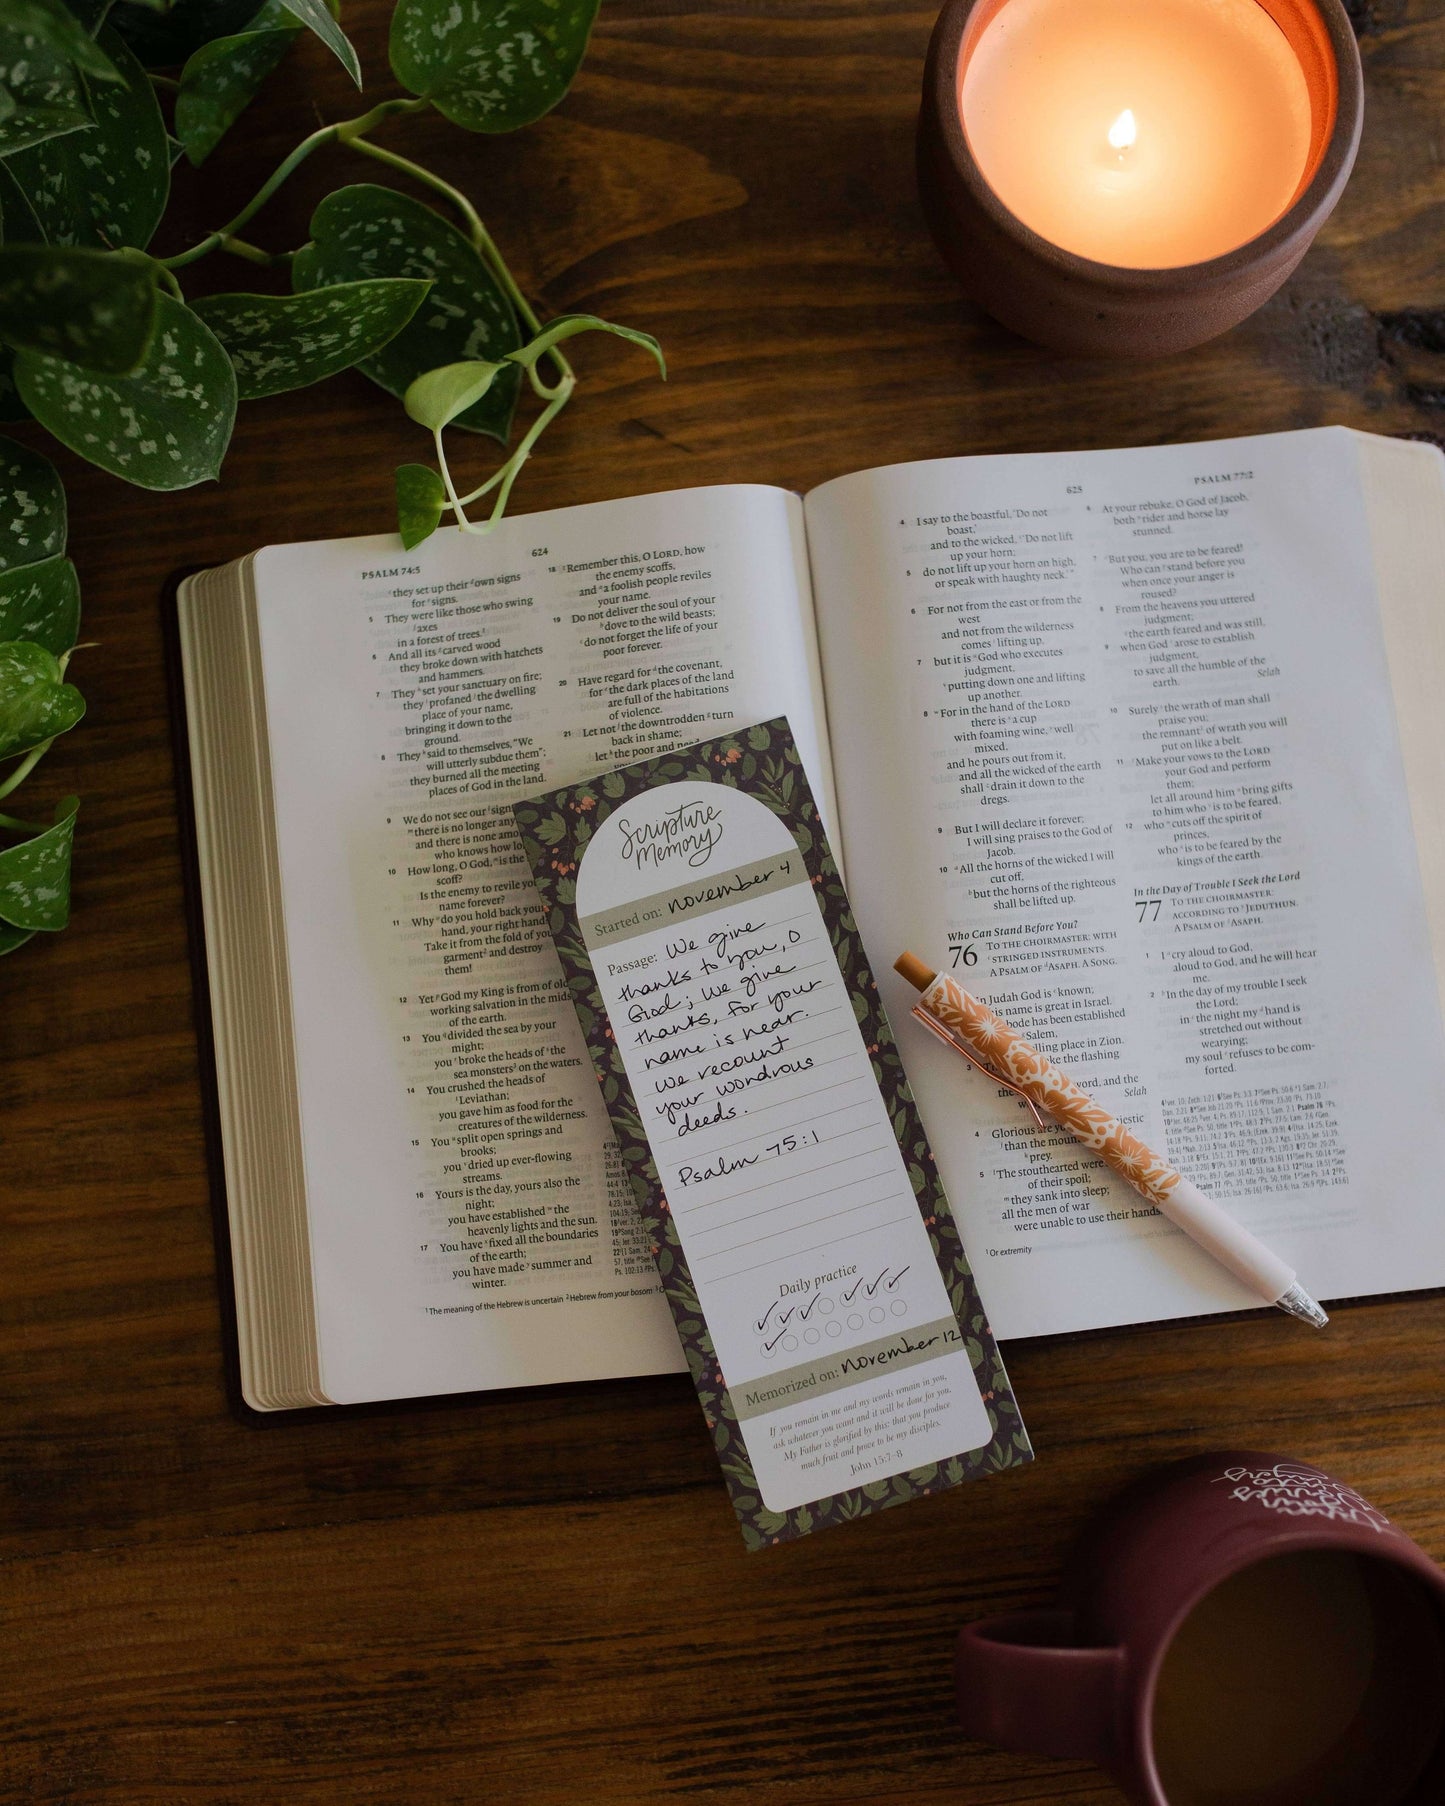 PSALM 74:5
624
they set up their own signs
for signs.
5 They were like those who swing
axes
in a forest of trees.
6 And all its carved wood
they broke down with hatchets
and hammers.
7 They set your sanctuary on fire;
they profaned the dwelling
place of your name,
bringing it down to the
ground.
8 They said to themselves, "We
will utterly subdue them";
they burned all the meeting
places of God in the land.
9 We do not see our signs
there is no longer any
and there is none amo
who knows how lo
10 How long, O God, is the
scoff?
Is the enemy to revile you
name forever?
11 Why do you hold back your
hand, your right hand
Take it from the fold of you
garment and destroy
them!
12 Yet God my King is from of old
working salvation in the mids
of the earth.
13 You divided the sea by your
might;
you broke the heads of the
sea monsters on the waters.
14 You crushed the heads of
Leviathan;
you gave him as food for the
creatures of the wilderness.
15 You split open springs and
brooks;
you dried up ever-flowing
streams.
16 Yours is the day, yours also the
night;
you have established the
heavenly lights and the sun.
17 You have fixed all the boundaries
of the earth;
you have made summer and
winter.
1 The meaning of the Hebrew is uncertain 2 Hebrew from your bosom
18 Remember this, O LORD, how
the enemy scoffs,
and a foolish people reviles
your name.
19 Do not deliver the soul of your
dove to the wild beasts;
do not forget the life of your
poor forever.
20 Have regard for the covenant,
for the dark places of the land
are full of the habitations
of violence.
21 Let not the downtrodden turn
back in shame;
let the poor and need
Scripture
Memory
Started on: november 4
Passage: We give
thanks to you, O
God; we give
thanks, for your
name is near.
We recount
your wondrous
deeds.
Psalm 75:1
Daily practice
Memorized on: november 12
If you remain in me and my words remain in you,
ask whatever you want and it will be done for you.
My Father is glorified by this: that you produce
much fruit and prove to be my disciples.
John 15:7–8
625
PSALM 77:2
4 I say to the boastful, 'Do not
boast,'
and to the wicked, 'Do not lift
up your horn;
5 do not lift up your horn on high,
or speak with haughty neck.'"
6 For not from the east or from the
west
and not from the wilderness
comes lifting up,
7 but it is God who executes
judgment,
putting down one and lifting
up another.
8 For in the hand of the LORD
there is a cup
with foaming wine, well
mixed,
and he pours out from it,
and all the wicked of the earth
shall drain it down to the
dregs.
9 But I will declare it forever;
I will sing praises to the God of
Jacob.
10 All the horns of the wicked I will
cut off,
but the horns of the righteous
shall be lifted up.
Who Can Stand Before You?
76 TO THE CHOIRMASTER: WITH
STRINGED INSTRUMENTS.
A PSALM OF ASAPH. A SONG.
n Judah God is known;
is name is great in Israel.
bode has been established
Salem,
lling place in Zion.
ke the flashing
word, and the
Selah
4 Glorious are you
than the moun
prey.
5 The stouthearted were
of their spoil;
they sank into sleep;
all the men of war
were unable to use their hands.
1 Or extremity
6 At your rebuke, O God of Jacob,
both rider and horse lay
stunned.
7 But you, you are to be feared!
Who can stand before you
when once your anger is
roused?
8 From the heavens you uttered
judgment;
the earth feared and was still,
9 when God arose to establish
judgment,
to save all the humble of the
earth. Selah
10 Surely the wrath of man shall
praise you;
the remnant of wrath you will
put on like a belt.
11 Make your vows to the LORD
your God and perform
them;
let all around him bring gifts
to him who is to be feared,
12 who cuts off the spirit of
princes,
who is to be feared by the
kings of the earth.
In the Day of Trouble I Seek the Lord
77 TO THE CHOIRMASTER:
ACCORDING TO JEDUTHUN.
A PSALM OF ASAPH.
1 I cry aloud to God,
aloud to God, and he will hear
me.
2 In the day of my trouble I seek
the Lord;
in the night my hand is
stretched out without
wearying;
my soul refuses to be com-
forted.